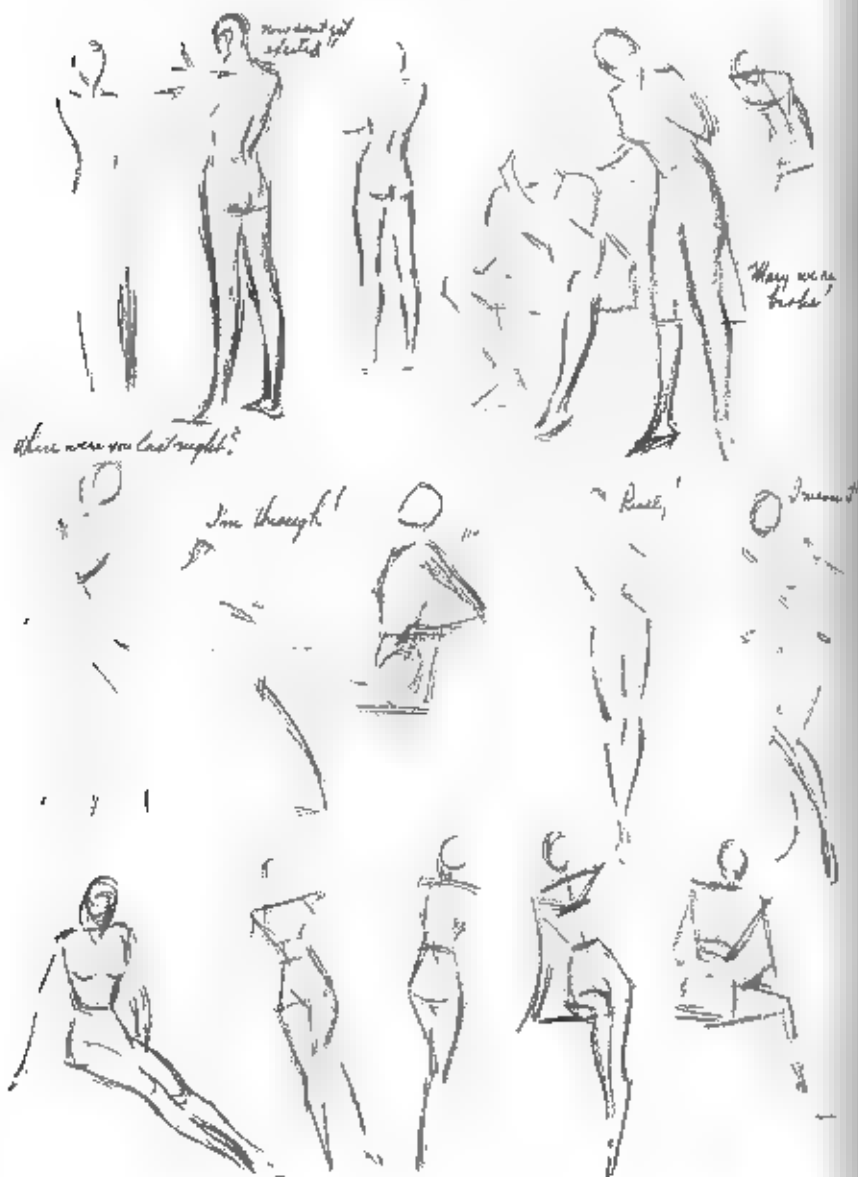 now don't get
excited
Mary we're
broke
Where were you last night?
I'm through!
Really!
I mean it